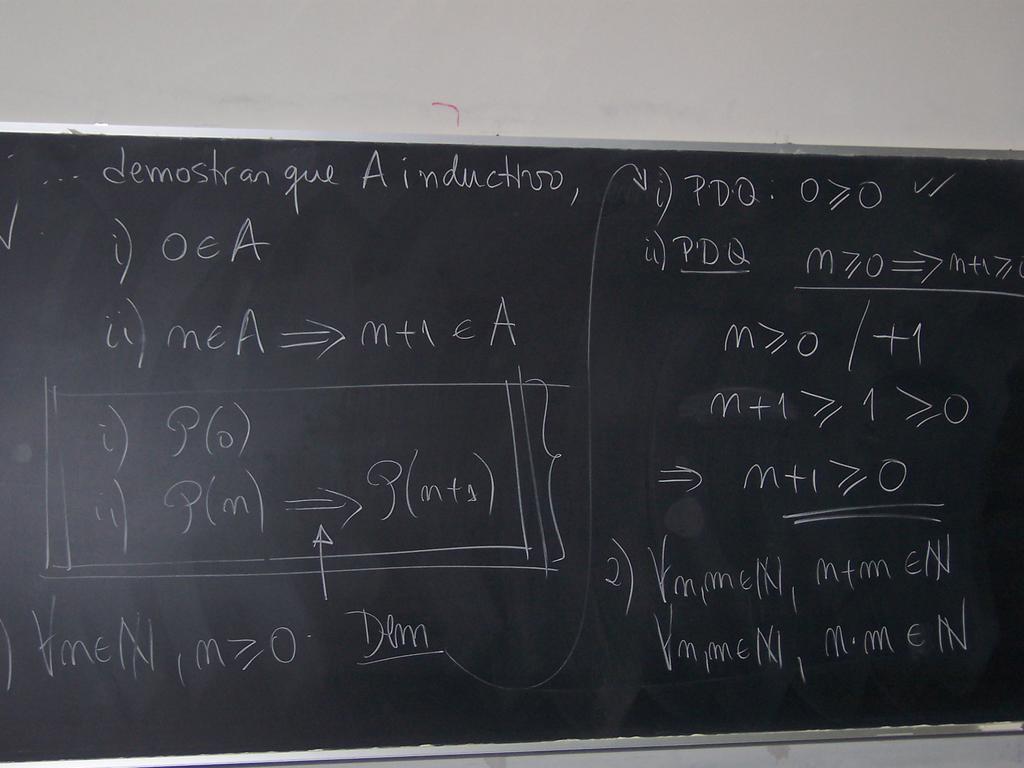 ... demostrar que A inductivo,
i) 0 ∈ A
ii) n ∈ A ⟹ n+1 ∈ A
i) P(0)
ii) P(n) ⟹ P(n+1)
) ∀n∈ℕ, n ≥ 0. Dem
i) PDQ: 0 ≥ 0 ✓
ii) PDQ n ≥ 0 ⟹ n+1 ≥ 0
n ≥ 0 / +1
n+1 ≥ 1 ≥ 0
⟹ n+1 ≥ 0
2) ∀n,m∈ℕ, n+m ∈ ℕ
∀n,m∈ℕ, n·m ∈ ℕ